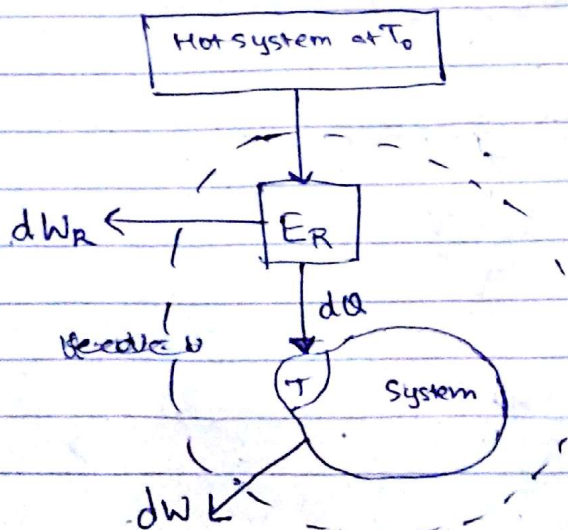 Hot system at T₀
dW_R
E_R
dQ
T
System
dW